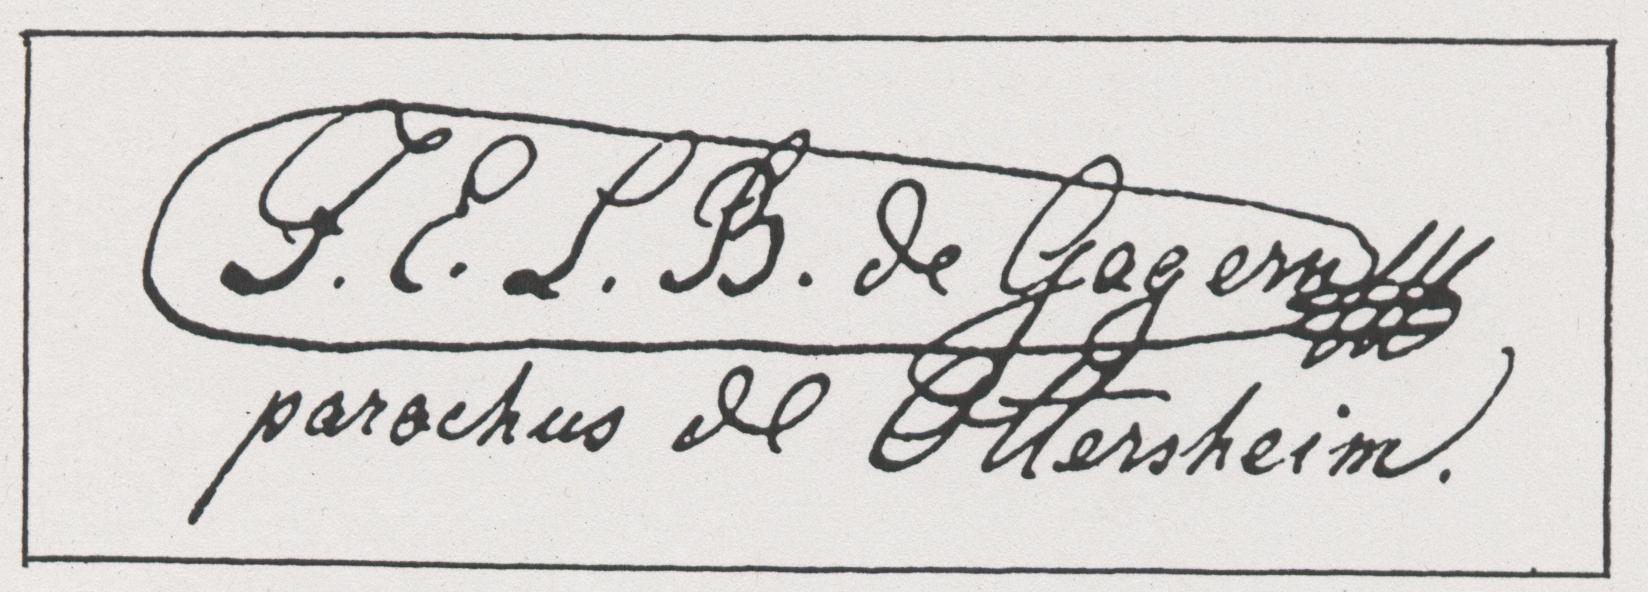 F. E. L. B. de Gagern
parochus de Ottersheim.